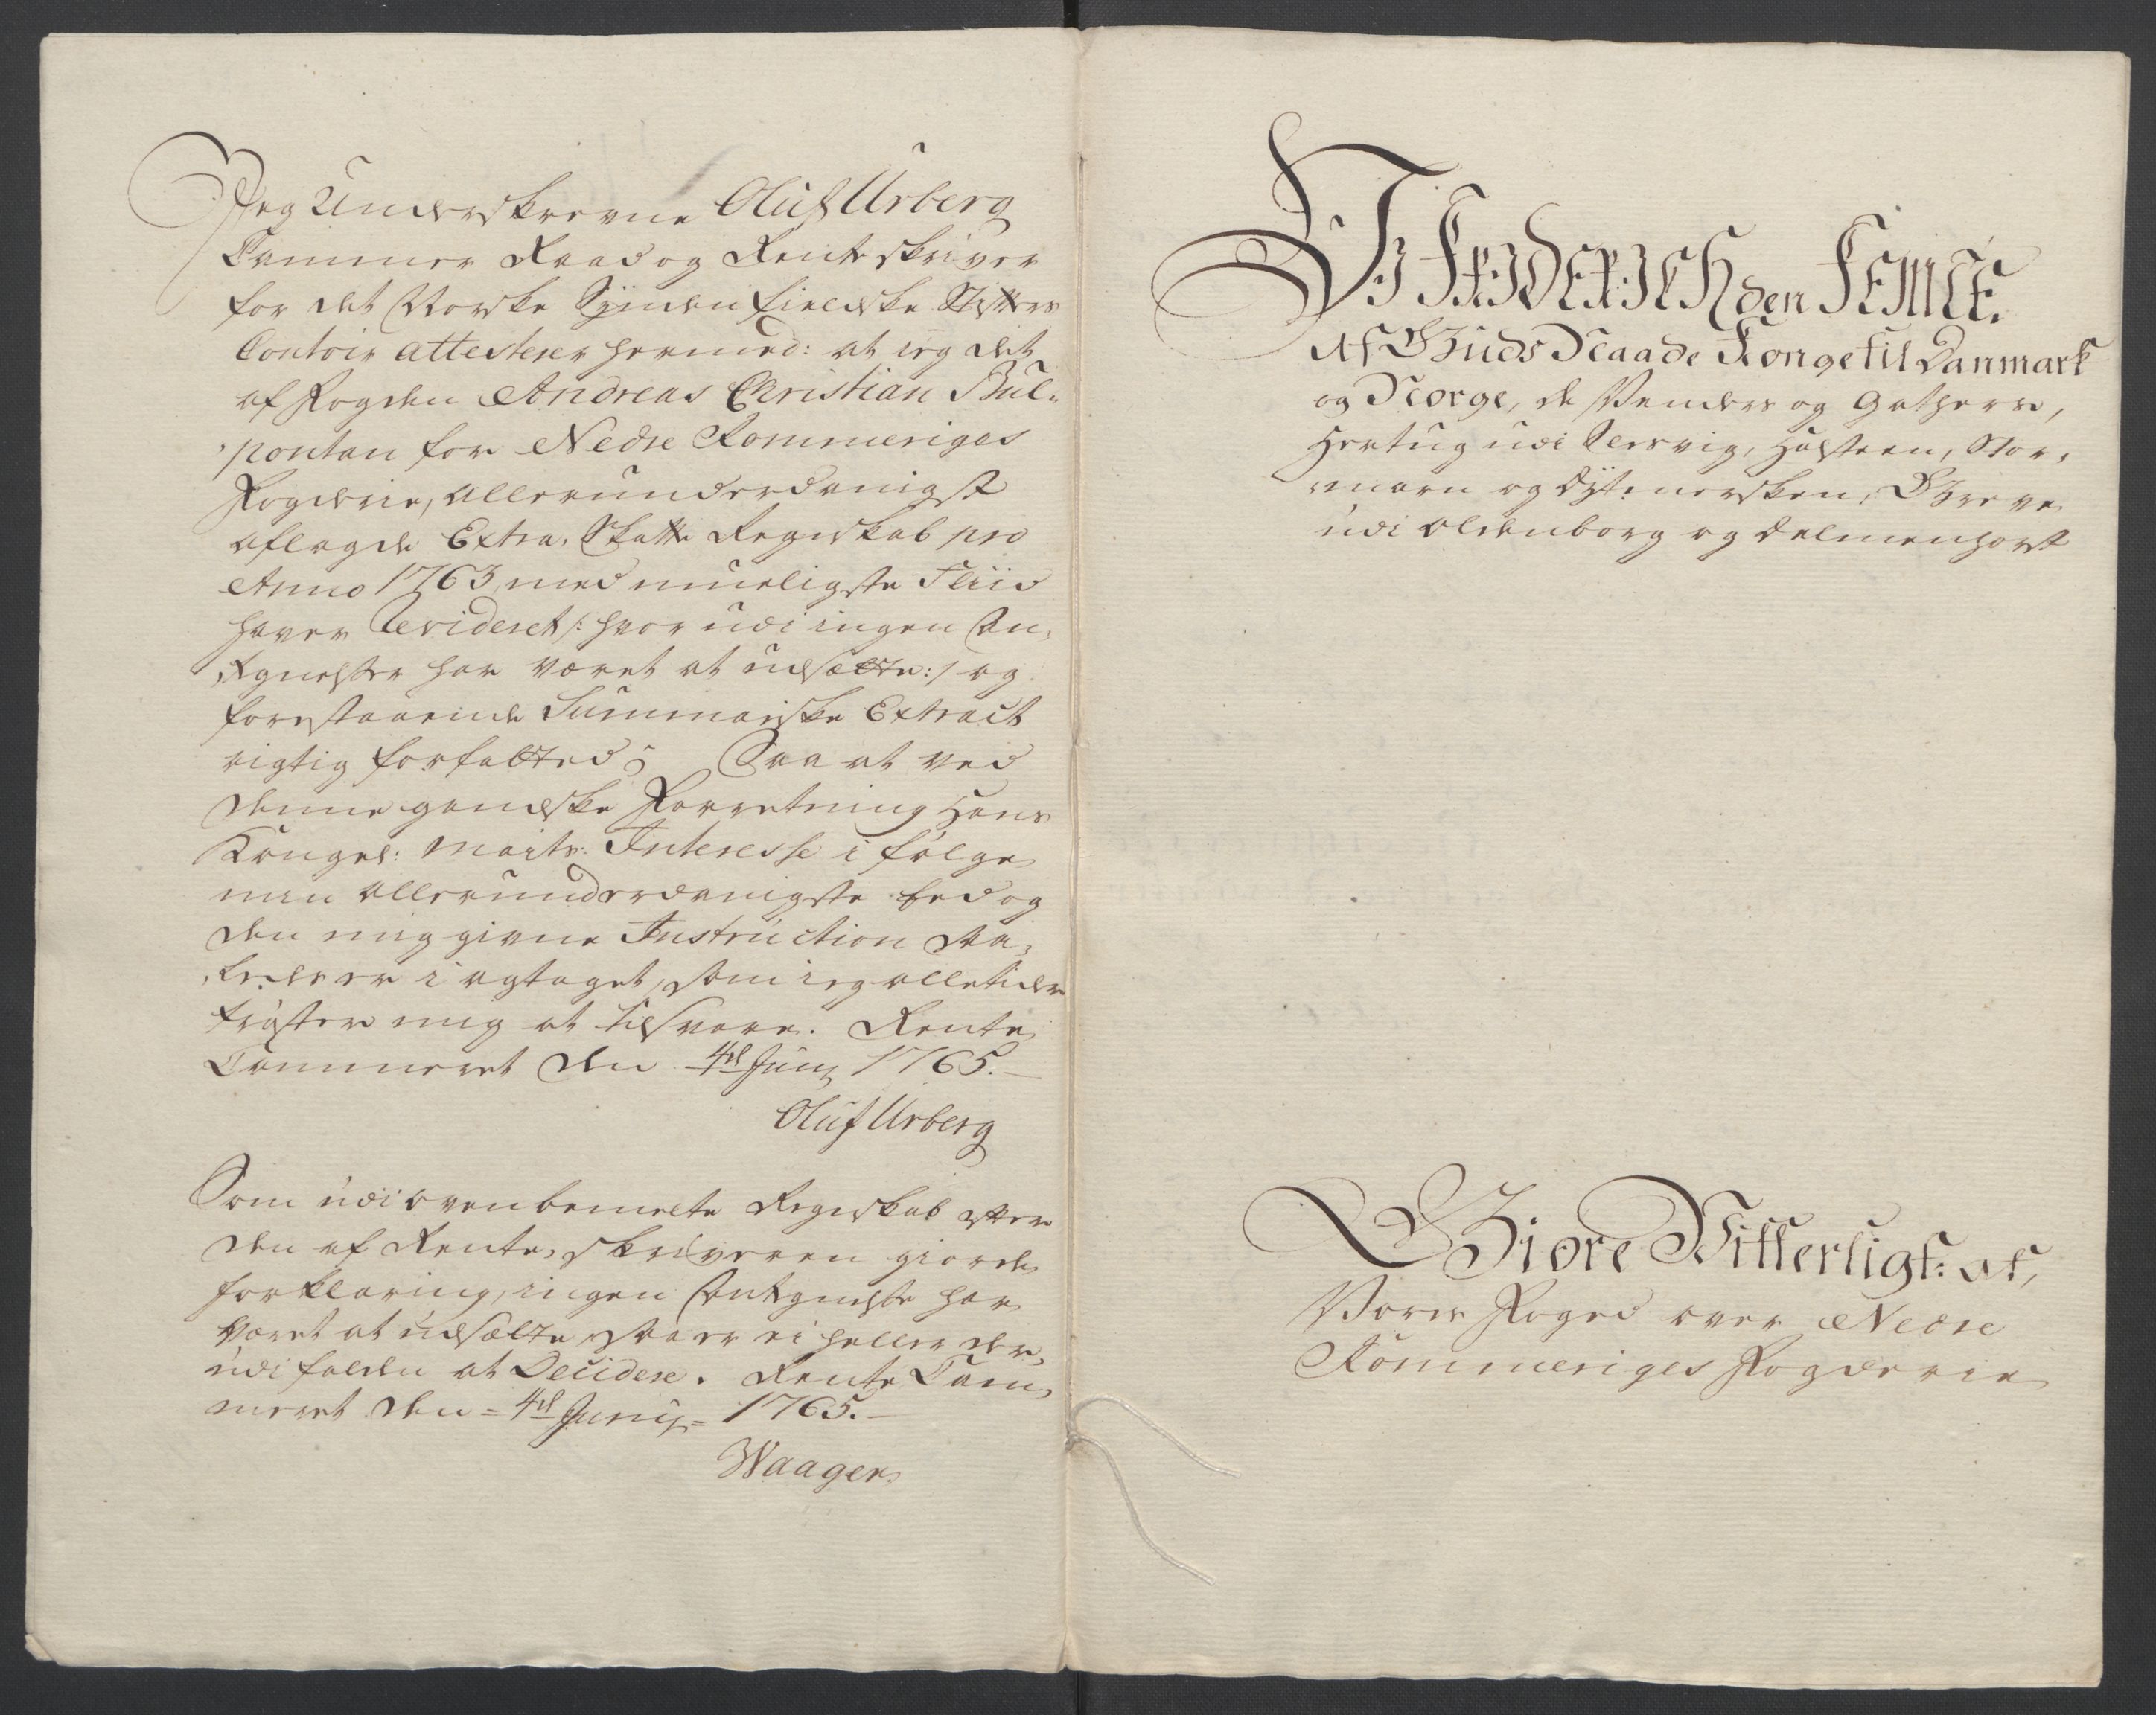 Jeg Underskrevne Oluf Urberg
Cammer Raad og Renteskriver
for det Norske Synden Fieldske
Contoir attesterer hermed: at jeg det
af Fogden Andreas Christian Bul-
pontan for Nedre Rommeriges
Fogderie, allerunderdanigst
aflagde Extra. Skatte Regnskab pro
Anno 1763, med mueligste Fliid
haver Revideret /: hvor udi ingen An-
tegnelser har været at udsætte :/ og
forestaaende Summariske Extract
rigtig forfatted; Saa at ved
denne gandske Forretning Hans
Kongel: Maits: Interesse i følge
min allerunderdanigste Eed og
den mig givne Instruction saa-
ledes er i agtaget, som jeg alletider
trøster mig at tilsvare. Rente
Cammeret den 4de Junij 1765.
Oluf Urberg
Som udi ovenbemelte Regnskab efter
den af Rente-skriveren giorde
forklaring, ingen Antegnelse har
været at udsætte, saa er ei heller der-
udi falden at Decidere. Rente Cam-
meret den = 4de Junij = 1765.
Waager
VJ FRIDERICH den FEMTE.
Af Guds Naade Konge til Danmark
og Norge, de Venders og Gothers,
Hertug udi Slesvig, Holsteen, Stor-
marn og Dytmersken, Greve
udi Oldenborg og Delmenhorst
Giøre Vitterligt: at,
Vores Foged over Nedre
Rommeriges Fogderie